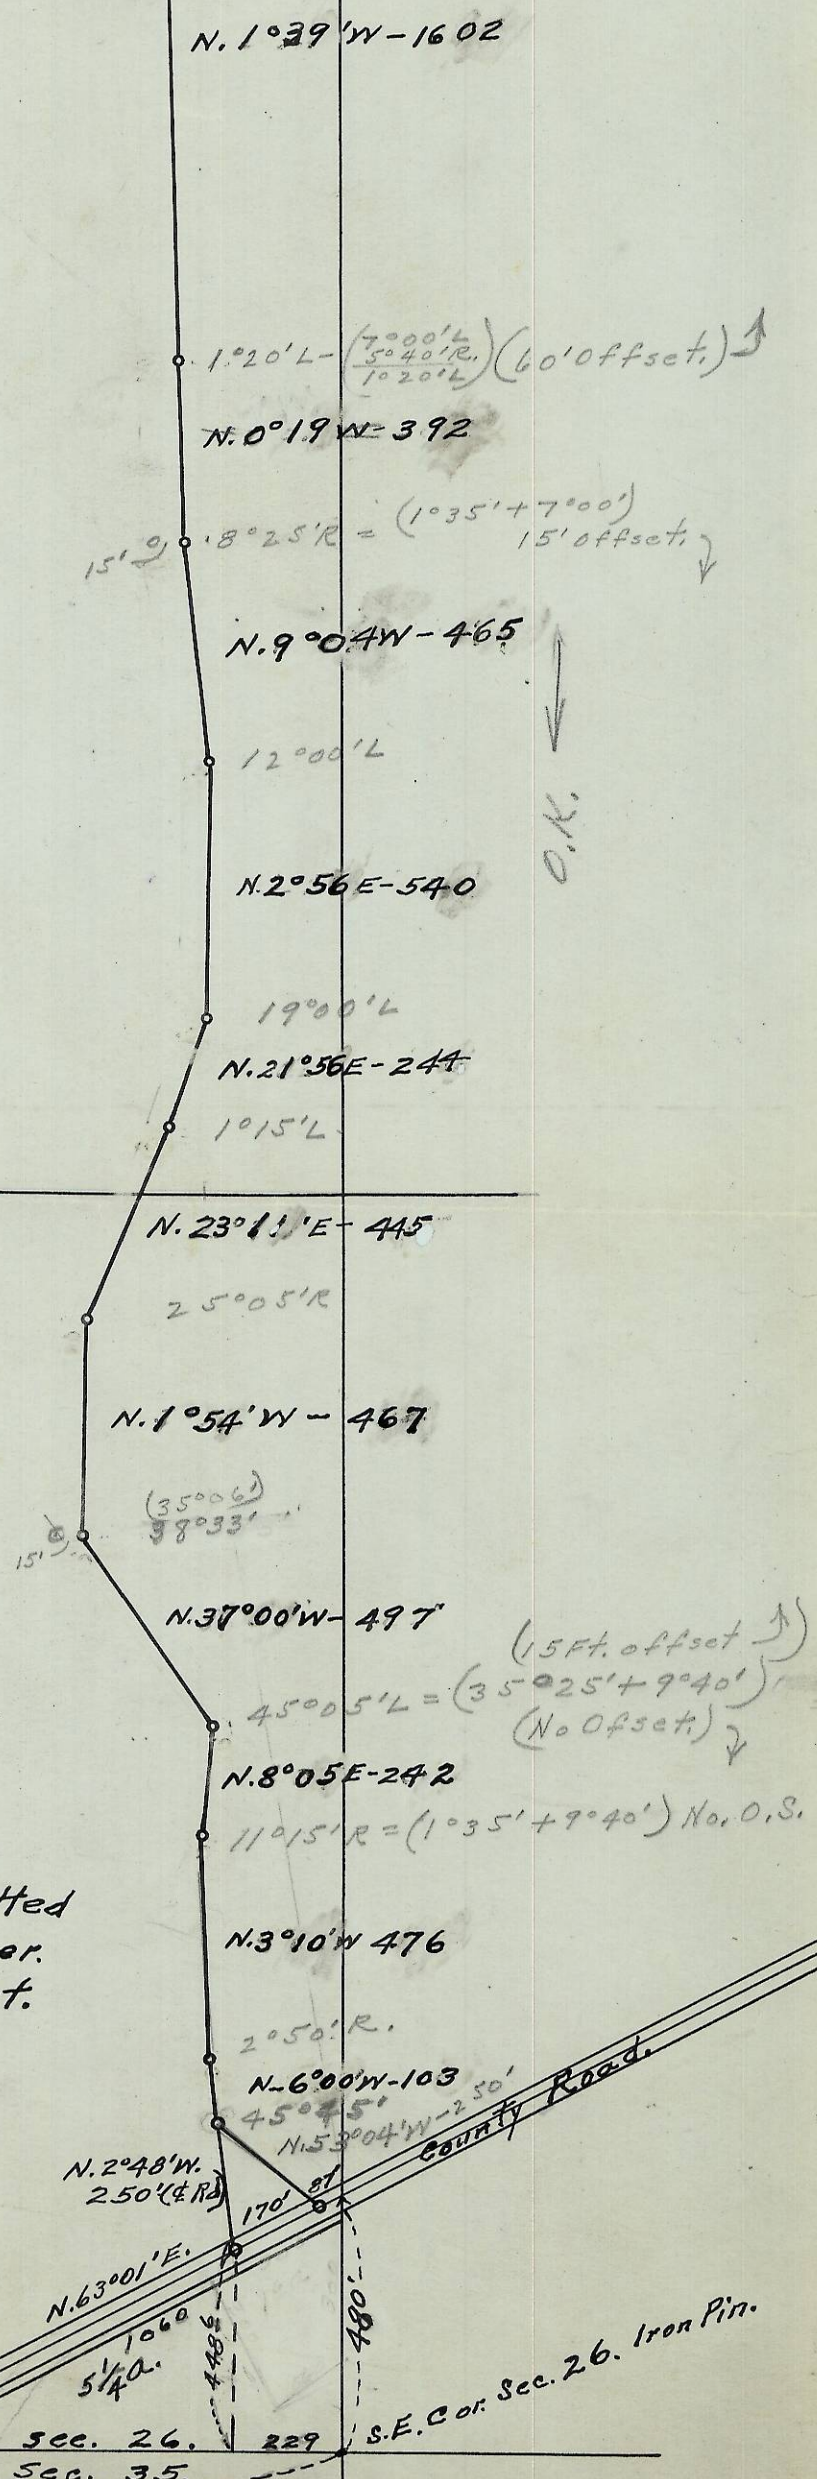 N. 1°39'W - 1602
1°20'L - (7°00'L
5°40'R.
1°20'L) (60' Offset.)
N. 0°19 W - 392
15'
8°25'R = (1°35' + 7°00')
15' Offset.
N. 9°04W - 465
12°00'L
O.K.
N. 2°56 E - 540
19°00'L
N. 21°56E - 244
1°15'L
N. 23°11'E - 445
25°05'R
N. 1°54'W - 467
(35°06')
38°33'
15'
N. 37°00'W - 497
(15 Ft. offset)
45°05'L = (35°25' + 9°40')
(No Ofset.)
N. 8°05E - 242
11°15'R = (1°35' + 9°40') No. O.S.
tted
er.
t.
N. 3°10'W 476
2°50' R.
N - 6°00'W - 103
45°45'
N. 53°04'W - 250'
County Road.
N. 2°48'W.
250' (℄ Rd)
170' 81'
N. 63°01'E.
1060
5 1/4 a.
448.6
480'
S.E. Cor. Sec. 26. Iron Pin.
Sec. 26. 229
Sec. 35